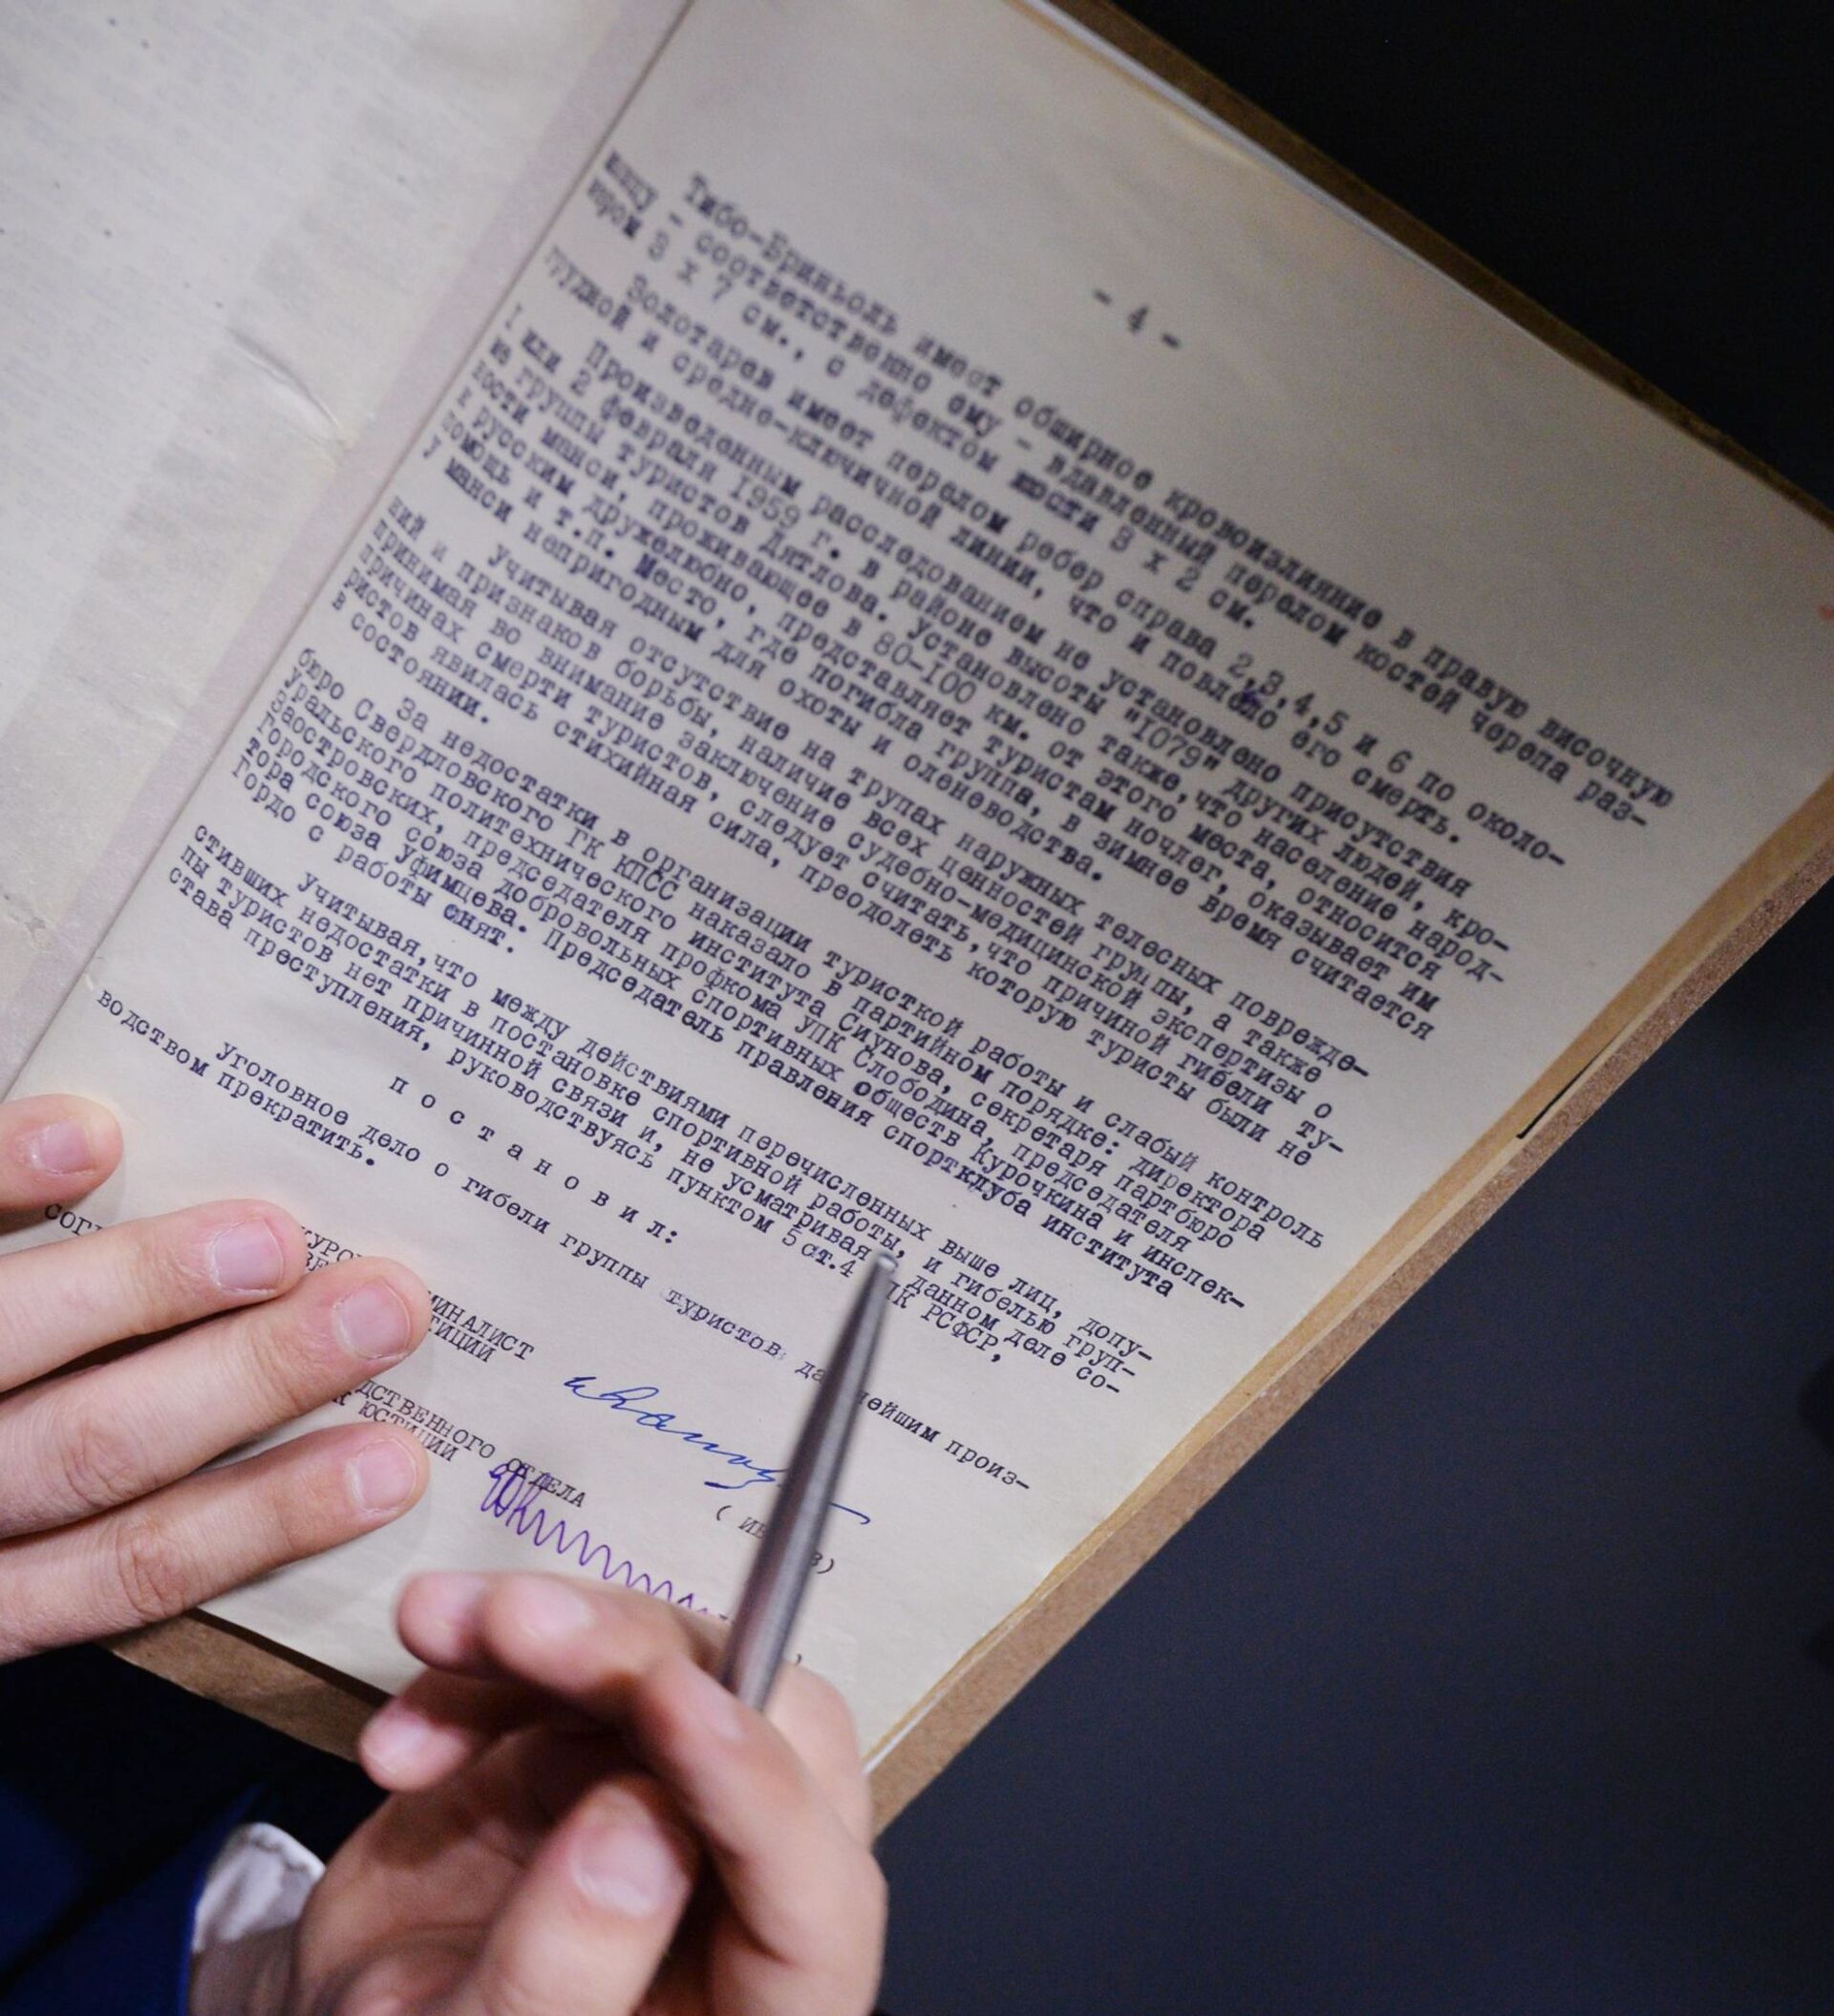 - 4 -
Тибо-Бриньоль имеет обширное кровоизлияние в правую височную
мышцу - соответственно ему - вдавленный перелом костей черепа раз-
мером 3 х 7 см., с дефектом кости 3 х 2 см.
Золотарев имеет перелом ребер справа 2,3,4,5 и 6 по около-
грудной и средне-ключичной линии, что и повлекло его смерть.
Произведенным расследованием не установлено присутствия
1 или 2 февраля 1959 г. в районе высоты "1079" других людей, кро-
из группы туристов Дятлова. Установлено также, что население народ-
ности манси, проживающее в 80-100 км. от этого места, относится
к русским дружелюбно, представляет туристам ночлег, оказывает им
помощь и т.п. Место, где погибла группа, в зимнее время считается
у манси непригодным для охоты и оленеводства.
Учитывая отсутствие на трупах наружных телесных поврежде-
ний и признаков борьбы, наличие всех ценностей группы, а также
принимая во внимание заключение судебно-медицинской экспертизы о
причинах смерти туристов, следует считать, что причиной гибели ту-
ристов явилась стихийная сила, преодолеть которую туристы были не
в состоянии.
За недостатки в организации туристкой работы и слабый контроль
бюро Свердловского ГК КПСС наказало в партийном порядке: директора
Уральского политехнического института Сиунова, секретаря партбюро
Заостровских, председателя профкома УПК Слободина, председателя
Городского союза добровольных спортивных обществ Курочкина и инспек-
тора союза Уфимцева. Председатель правления спортклуба института
Гордо с работы снят.
Учитывая, что между действиями перечисленных выше лиц, допу-
стивших недостатки в постановке спортивной работы, и гибелью груп-
пы туристов нет причинной связи и, не усматривая данном деле со-
става преступления, руководствуясь пунктом 5 ст.4 РСФСР,
п о с т а н о в и л :
Уголовное дело о гибели группы туристов нейшим произ-
водством прекратить.
ОТДЕЛА
ЮСТИЦИИ